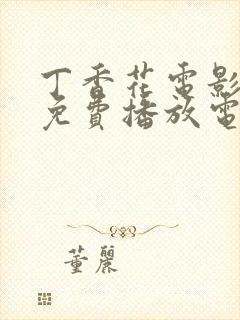 丁香花電影
免費播放電
董麗